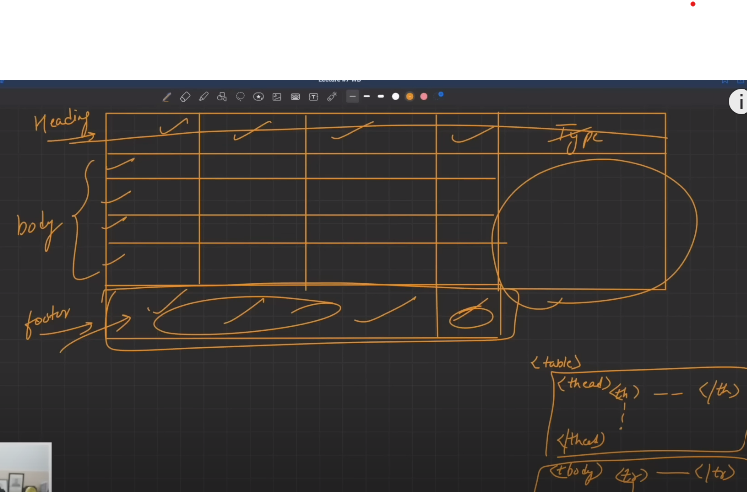 Heading
Type
body
footer
<table>
<thead> <th> -- </th>
</thead>
<tbody> <tr> — </tr>